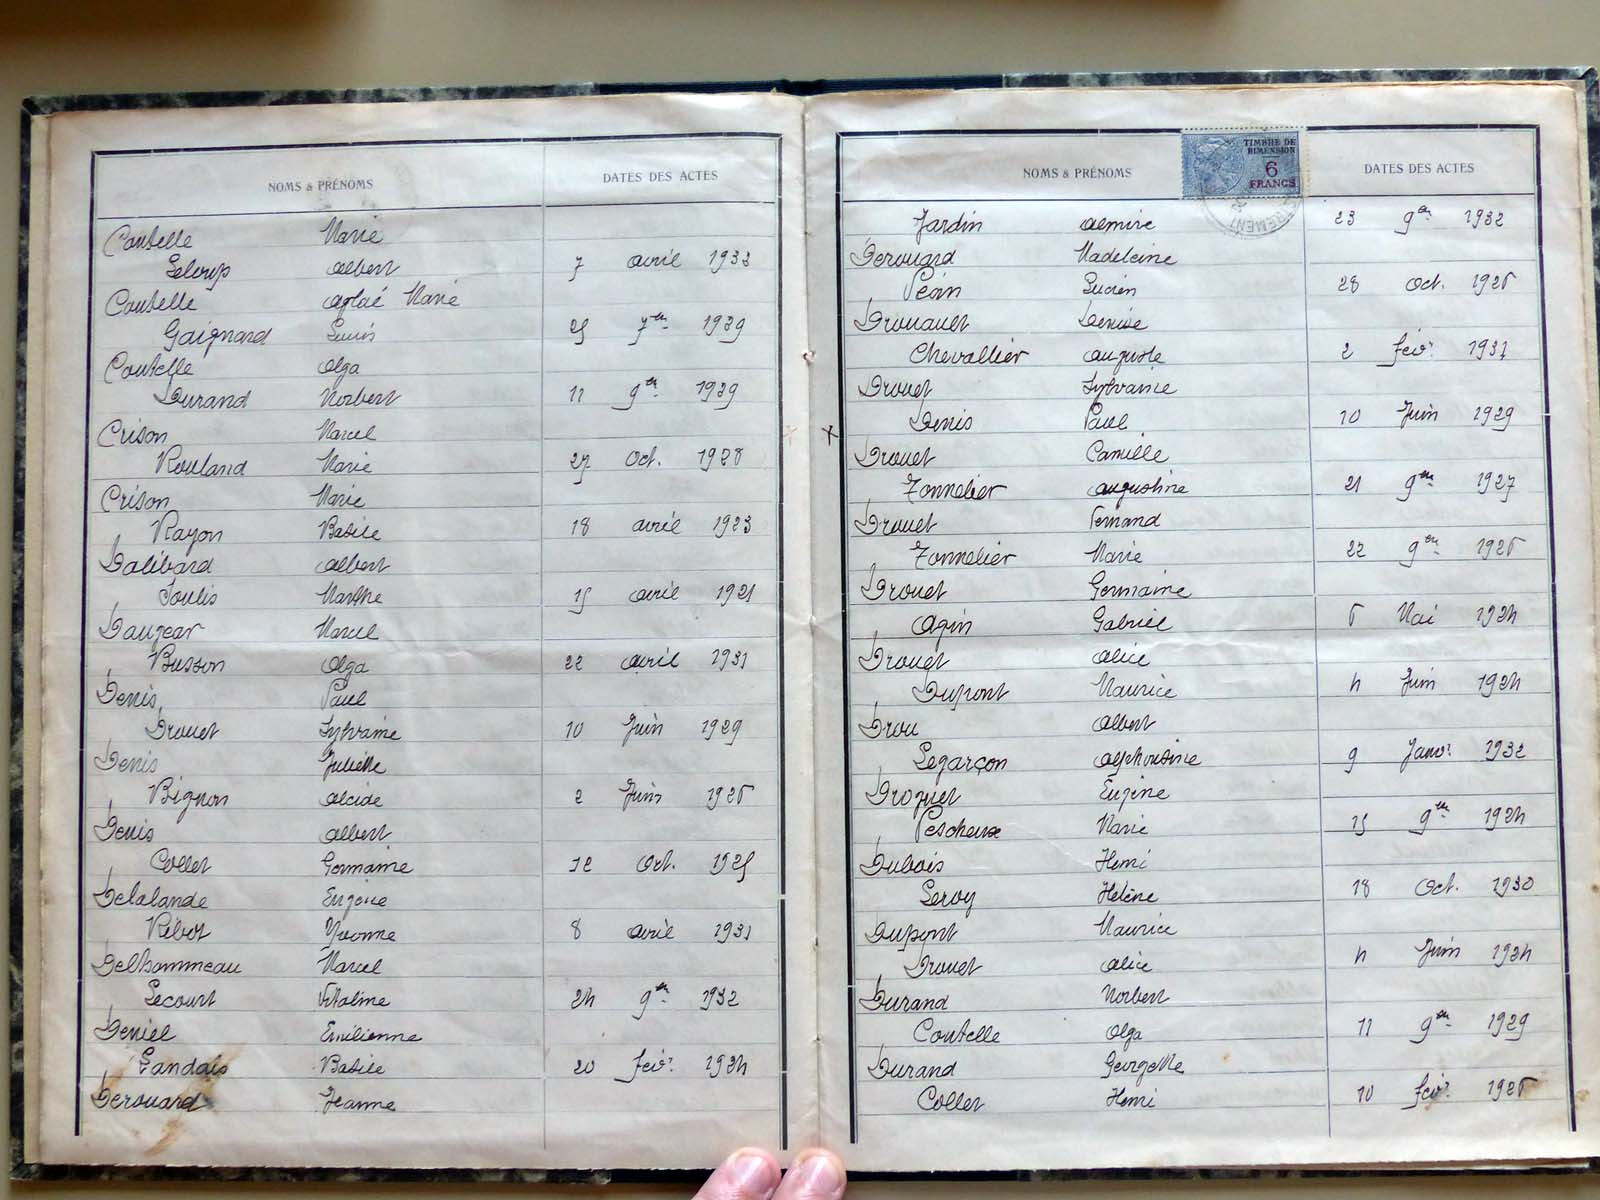 NOMS & PRÉNOMS DATES DES ACTES
Coutelle Marie
Leloup Albert 7 avril 1932
Coutelle Aglaé Marie
Gaignard Louis 25 7bre 1929
Coutelle Olga
Durand Norbert 11 9bre 1929
Crison Marcel
Rouland Marie 27 Oct. 1928
Crison Marie
Rayon Basile 18 avril 1923
Dalibard Albert
Toulis Marthe 15 avril 1921
Daugear Marcel
Busson Olga 22 avril 1931
Denis Paul
Drouet Sylvanie 10 Juin 1929
Denis Juliette
Bignon Alcide 2 Juin 1926
Denis Albert
Collet Germaine 12 Oct. 1925
Delalande Eugène
Ribot Yvonne 8 avril 1931
Delhommeau Marcel
Lecourt Vitaline 24 9bre 1932
Deniel Emilienne
Landais Basile 20 fevr 1924
Derouard Jeanne
NOMS & PRÉNOMS DATES DES ACTES
TIMBRE DE
DIMENSION
6
FRANCS
Jardin Almire 23 9bre 1932
Derouard Madeleine
Péan Lucien 28 Oct. 1926
Drouault Denise
Chevallier Auguste 2 fevr 1927
Drouet Sylvanie
Denis Paul 10 Juin 1929
Drouet Camille
Tonnelier Augustine 21 9bre 1927
Drouet Fernand
Tonnelier Marie 22 9bre 1926
Drouet Germaine
Agin Gabriel 6 Mai 1924
Drouet Alice
Dupont Maurice 4 Juin 1924
Drou Albert
Legarçon Alphonsine 9 Janvr 1932
Droguet Eugène
Pescheux Marie 15 9bre 1924
Dubois Henri
Leroy Hélène 18 Oct. 1930
Dupont Maurice
Drouet Alice 4 Juin 1924
Durand Norbert
Coutelle Olga 11 9bre 1929
Durand Georgette
Collet Henri 10 fevr 1926